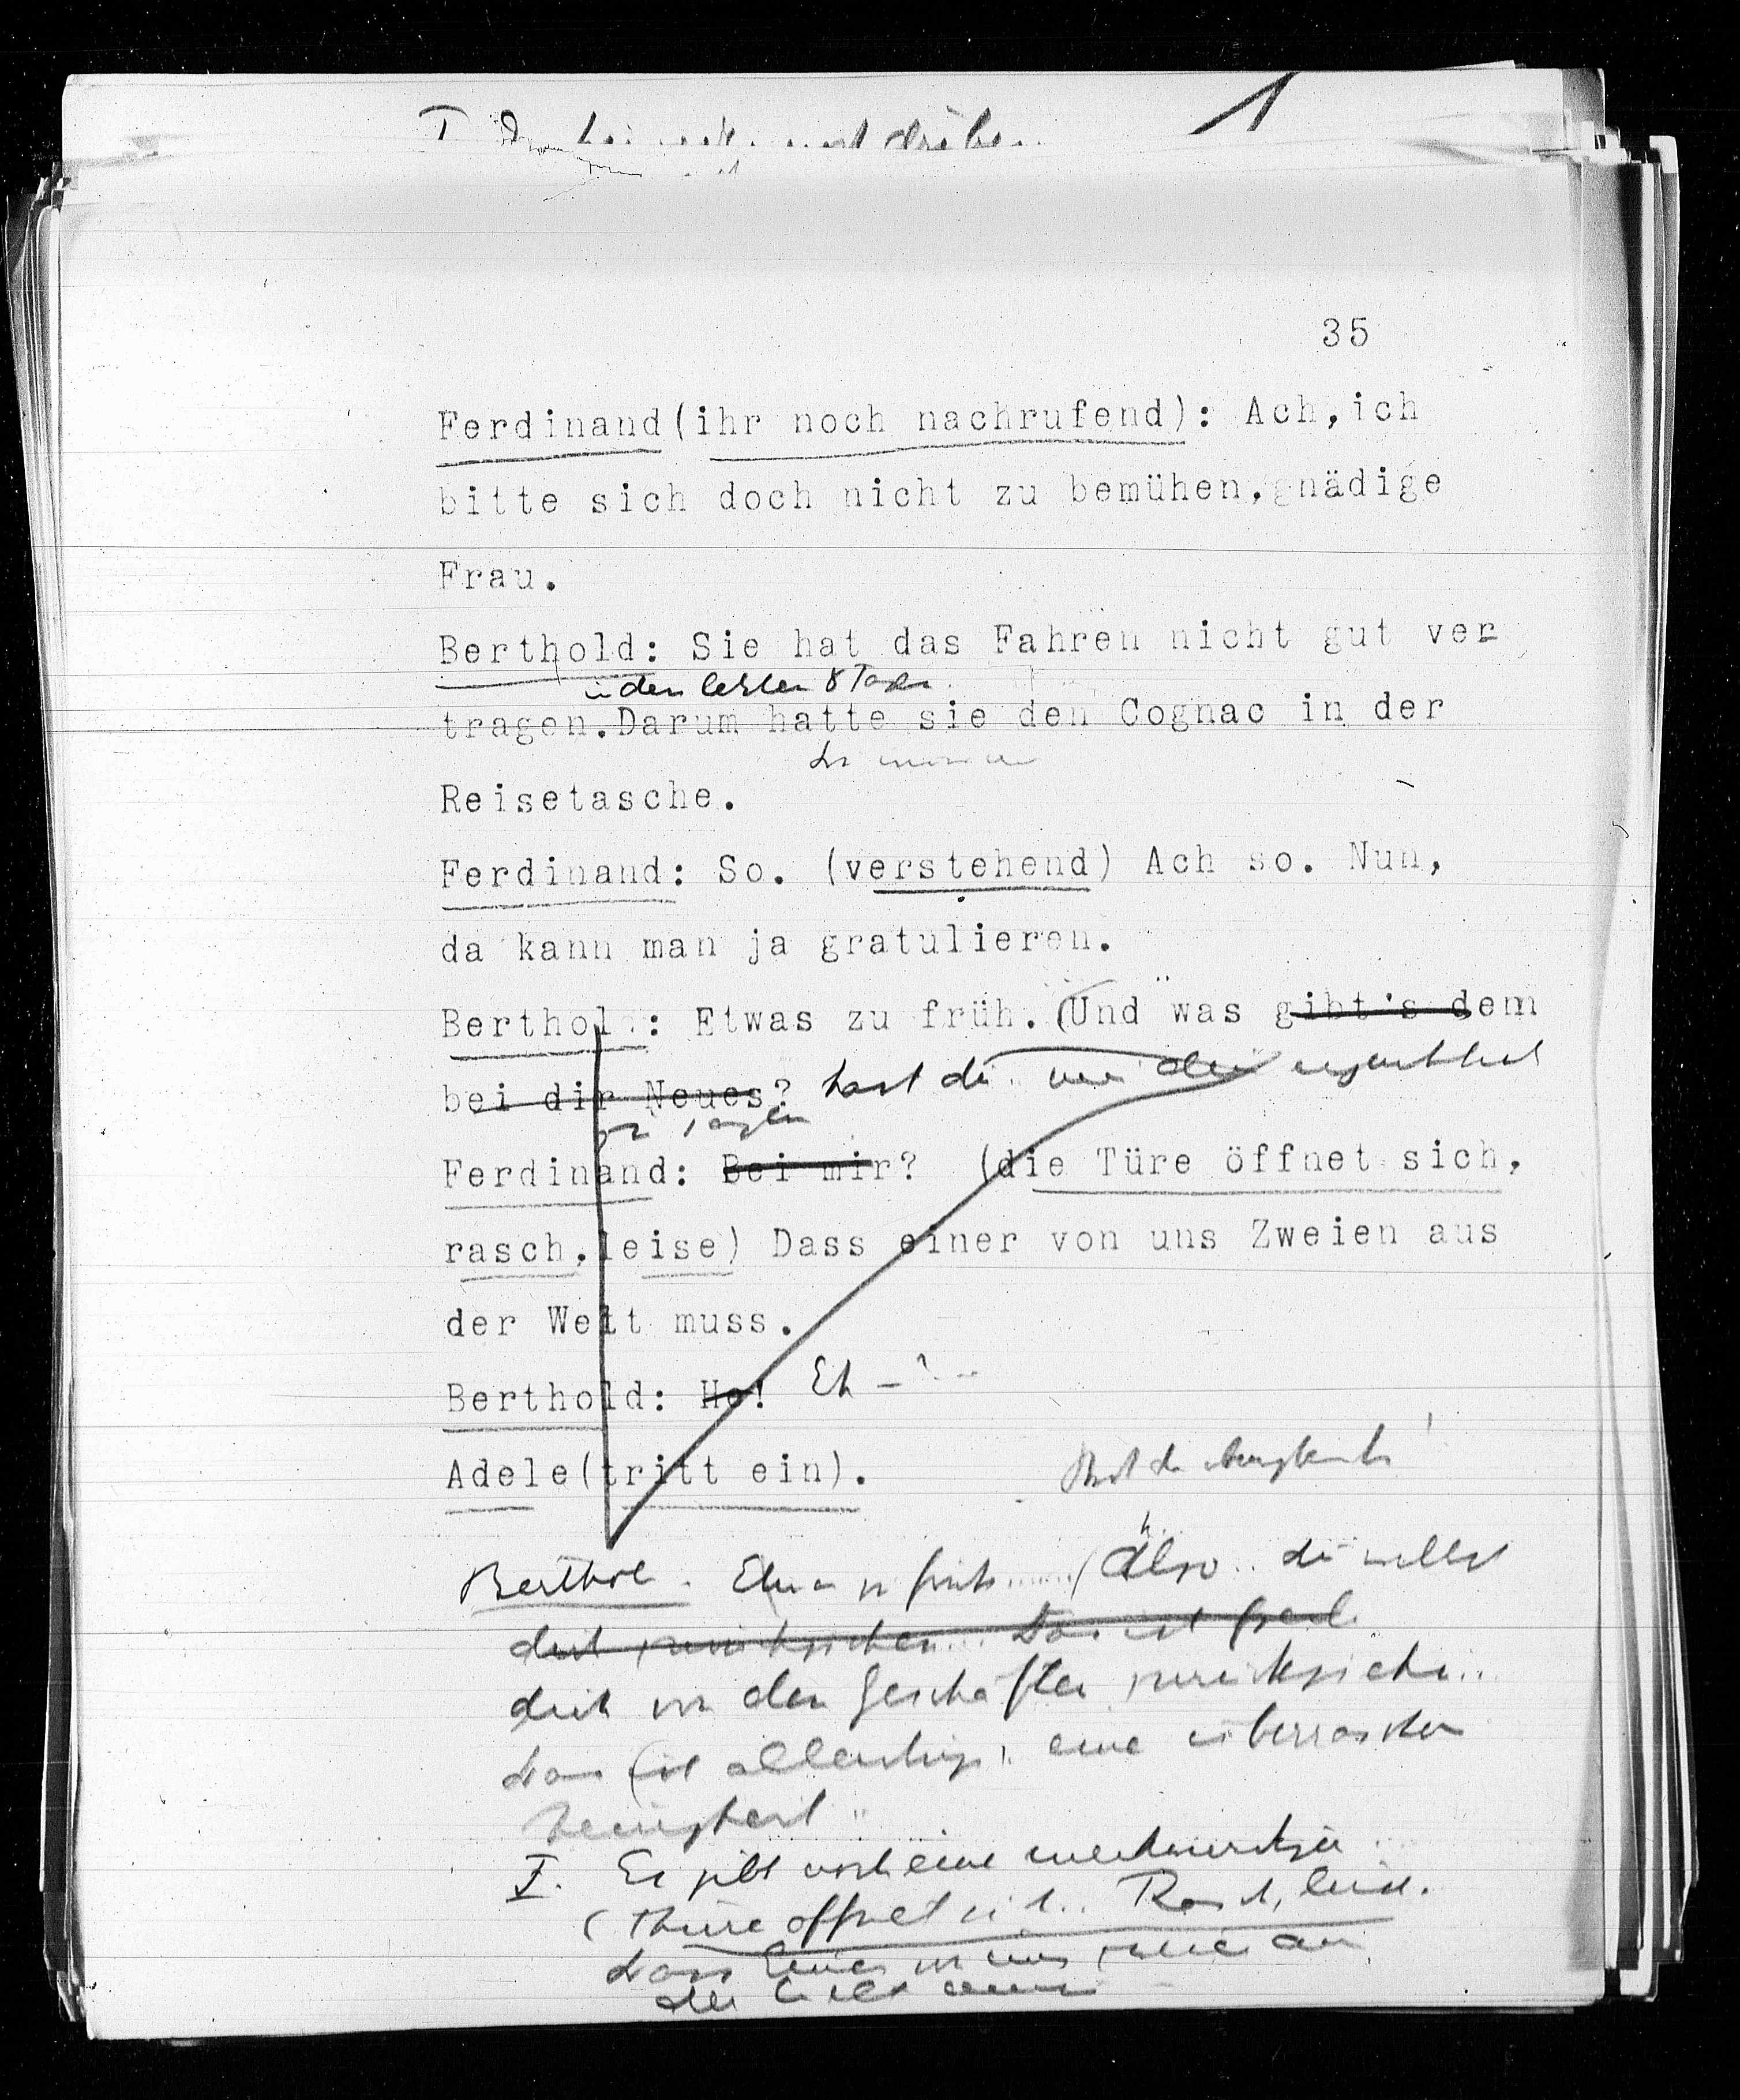 1
35
Ferdinand(ihr noch nachrufend): Ach,ich
bitte sich doch nicht zu bemühen,gnädige
Frau.
Berthold: Sie hat das Fahren nicht gut ver
in den letzten 8 Tagen
tragen.Darum hatte sie den Cognac in der
Reisetasche.
Ferdinand: So. (verstehend) Ach so. Nun,
da kann man ja gratulieren.
Berthold: Etwas zu früh. (Und was gibt's dem
bei dir Neues? hast du mir denn eigentlich
zu sagen
Ferdinand: Bei mir? (die Türe öffnet sich,
rasch,leise) Dass einer von uns Zweien aus
der Welt muss.
Berthold: Ho! Eh – ?
Adele(tritt ein).
Berthol. Etwas zu früh ..... Also .. du willst
dich zurückziehen ... Das ist
dich von den Geschäften zurückziehn ..
Das ist allerdings eine überraschen
Neuigkeit ..
F. Es gibt noch eine merkwürdigere
(Thüre öffnet sich .. Rasch, leise.
Dass Einer von uns zweien aus
der Welt muss